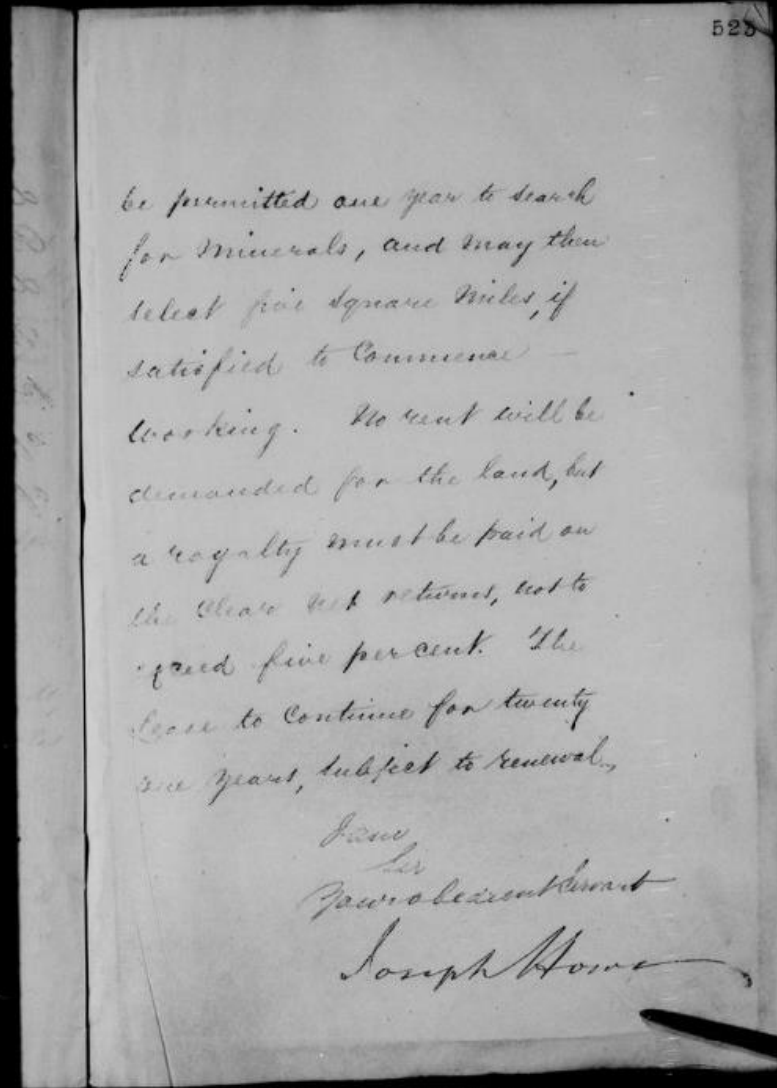 523
be permitted one year to search
for Minerals, and may then
select five Square Miles, if
satisfied to Commence —
working. No rent will be
demanded for the land, but
a royalty must be paid on
the clear net returns, not to
exceed five per cent. The
Lease to continue for twenty
one years, subject to renewal.
I am
Sir
Your obedient Servant
Joseph Howe